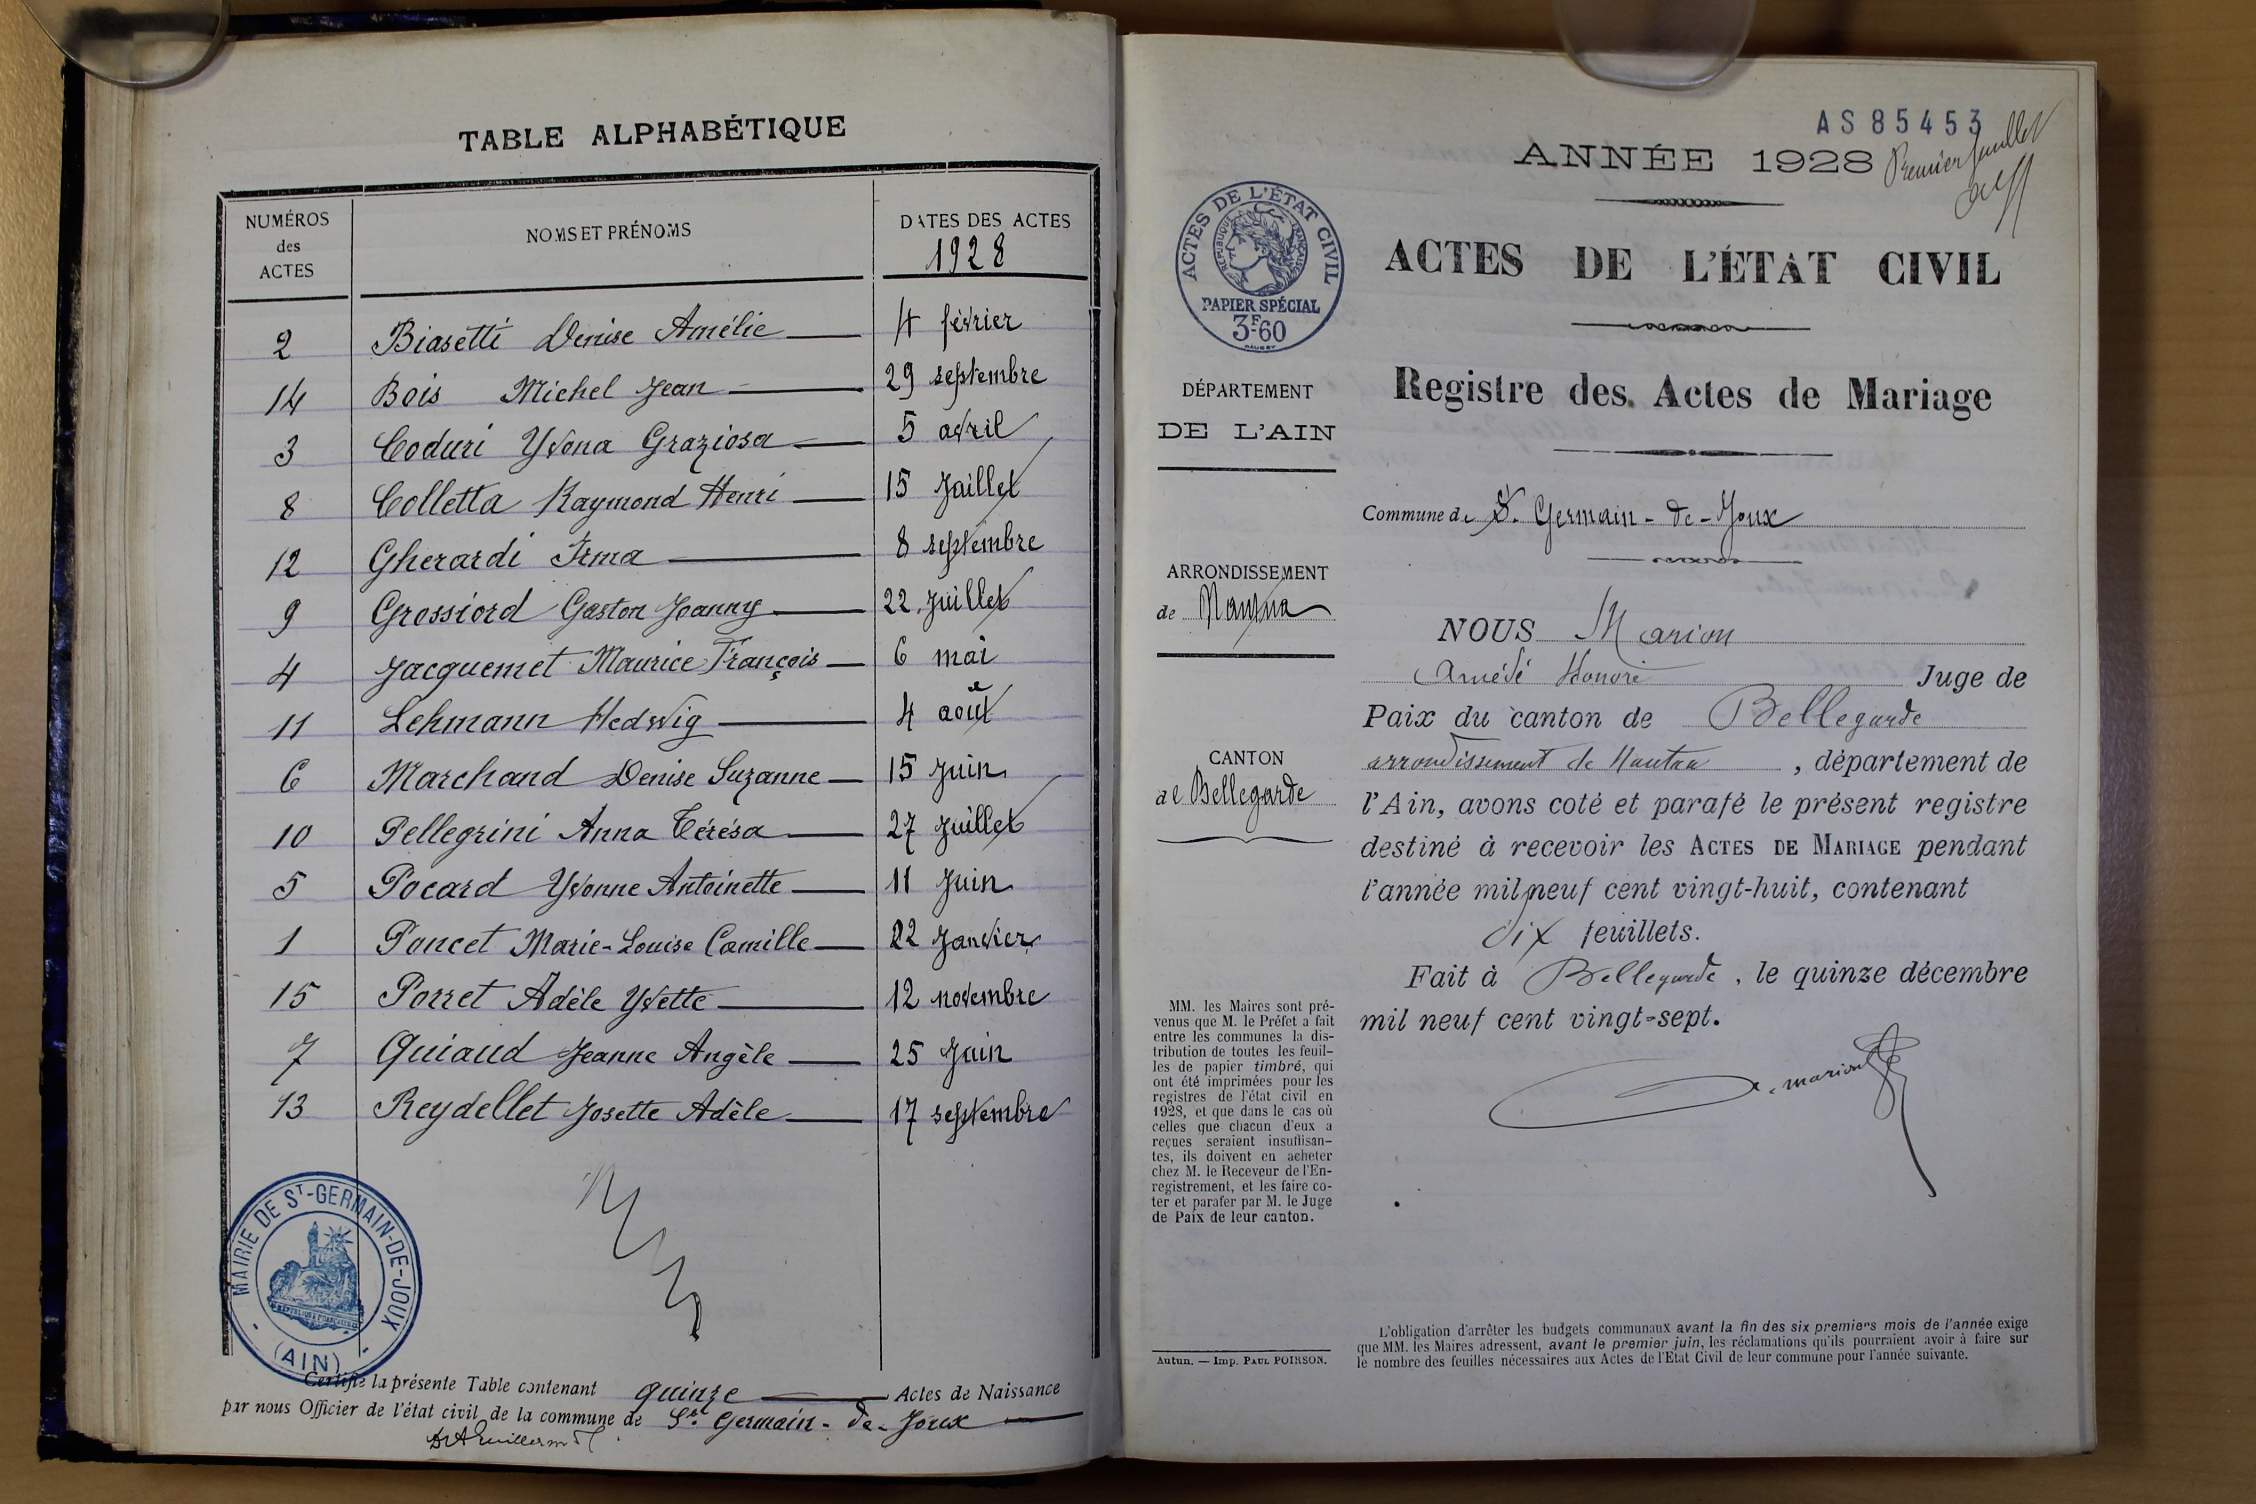 TABLE ALPHABÉTIQUE
NUMÉROS des ACTES
NOMS ET PRÉNOMS
DATES DES ACTES
1928
2 Biasetti Denise Amélie 4 février
14 Bois Michel Jean 29 septembre
3 Coduri Yvona Graziosa 5 avril
8 Colletta Raymond Henri 15 Juillet
12 Gherardi Irma 8 septembre
9 Grossiord Gaston Joanny 22 Juillet
4 Jacquemet Maurice François 6 mai
11 Lehmann Hedwig 4 août
6 Marchand Denise Suzanne 15 Juin
10 Pellegrini Anna Térésa 27 Juillet
5 Pocard Yvonne Antoinette 11 Juin
1 Poncet Marie-Louise Camille 22 Janvier
15 Porret Adèle Yvette 12 novembre
7 Quiaud Jeanne Angèle 25 Juin
13 Reydellet Josette Adèle 17 septembre
MAIRIE DE ST-GERMAIN-DE-JOUX
(AIN)
Certifié la présente Table contenant quinze Actes de Naissance
par nous Officier de l'état civil de la commune de St. Germain-de-Joux
AS 85453
ANNÉE 1928
Premier feuillet
ACTES DE L'ÉTAT CIVIL
RÉPUBLIQUE FRANÇAISE
PAPIER SPÉCIAL
3F.60
ACTES DE L'ÉTAT CIVIL
Registre des Actes de Mariage
DÉPARTEMENT
DE L'AIN
Commune de St. Germain-de-Joux
ARRONDISSEMENT
de Nantua
CANTON
de Bellegarde
NOUS Marion
Amédé Honoré Juge de
Paix du canton de Bellegarde
arrondissement de Nantua, département de
l'Ain, avons coté et parafé le présent registre
destiné à recevoir les ACTES DE MARIAGE pendant
l'année mil neuf cent vingt-huit, contenant
dix feuillets.
Fait à Bellegarde, le quinze décembre
mil neuf cent vingt-sept.
marion
MM. les Maires sont pré-
venus que M. le Préfet a fait
entre les communes la dis-
tribution de toutes les feuil-
les de papier timbré, qui
ont été imprimées pour les
registres de l'état civil en
1928, et que dans le cas où
celles que chacun d'eux a
reçues seraient insuffisan-
tes, ils doivent en acheter
chez M. le Receveur de l'En-
registrement, et les faire co-
ter et parafer par M. le Juge
de Paix de leur canton.
Autun. — Imp. PAUL POIRSON.
L'obligation d'arrêter les budgets communaux avant la fin des six premiers mois de l'année exige
que MM. les Maires adressent, avant le premier juin, les réclamations qu'ils pourraient avoir à faire sur
le nombre des feuilles nécessaires aux Actes de l'Etat Civil de leur commune pour l'année suivante.